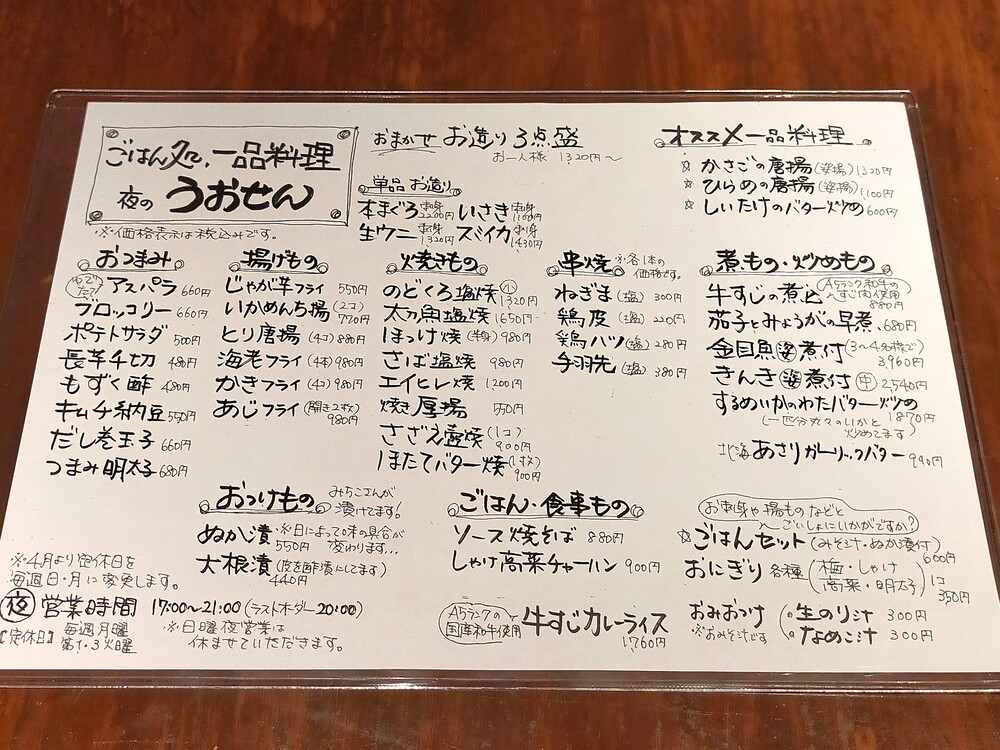 ごはん処、一品料理
夜の うおせん
※価格表示は税込みです。
おまかせ お造り3点盛
お一人様 1320円〜
単品 お造り
本まぐろ 赤身 2200円 いさき 1100円
生ウニ 1320円 スミイカ 1430円
オススメ一品料理
☆ かさごの唐揚(姿揚) 1320円
☆ ひらめの唐揚(姿揚) 1100円
☆ しいたけのバター炒め 600円
おつまみ
ゆでたて! アスパラ 660円
ブロッコリー 660円
ポテトサラダ 500円
長芋千切 480円
もずく酢 480円
キムチ納豆 550円
だし巻玉子 660円
つまみ明太子 680円
揚げもの
じゃが芋フライ 550円
いかめんち揚(2コ) 770円
とり唐揚(4コ) 880円
海老フライ(4本) 980円
かきフライ(4コ) 980円
あじフライ(開き2枚) 980円
焼きもの
のどくろ塩焼(小) 1320円
太刀魚塩焼 1650円
ほっけ焼(半身) 980円
さば塩焼 980円
エイヒレ焼 1200円
焼き厚揚 550円
さざえ壺焼(1コ) 900円
ほたてバター焼(1枚) 900円
串焼 ※各1本の価格です。
ねぎま(塩) 300円
鶏皮(塩) 220円
鶏ハツ(塩) 280円
手羽先(塩) 380円
煮もの・炒めもの
牛すじの煮込(A5ランク和牛のすじ肉使用) 880円
茄子とみょうがの早煮 680円
金目魚(姿)煮付(3〜4名様で) 3,960円
きんき(姿)煮付(中) 2,540円
するめいかのわたバター炒め
(一匹分丸々のいかと炒めてます) 1870円
北海あさりガーリックバター 990円
おつけもの みちこさんが漬けてます!
ぬか漬 ※日によって味の具合が変わります...
550円
大根漬(皮を酢漬にしてます)
440円
ごはん・食事もの
ソース焼そば 880円
しゃけ高菜チャーハン 900円
A5ランクの国産和牛使用 牛すじカレーライス
1760円
お刺身や揚ものなどと
ごいっしょにいかがですか?
☆ごはんセット(みそ汁・ぬか漬付)
600円
おにぎり各種(梅・しゃけ 高菜・明太子) 1コ 350円
おみおつけ ※おみそ汁です
生のり汁 300円
なめこ汁 300円
※4月より定休日を
毎週日・月に変更します。
夜 営業時間 17:00〜21:00(ラストオーダー20:00)
【定休日】毎週月曜 第1・3火曜
※日曜夜営業は
休ませていただきます。